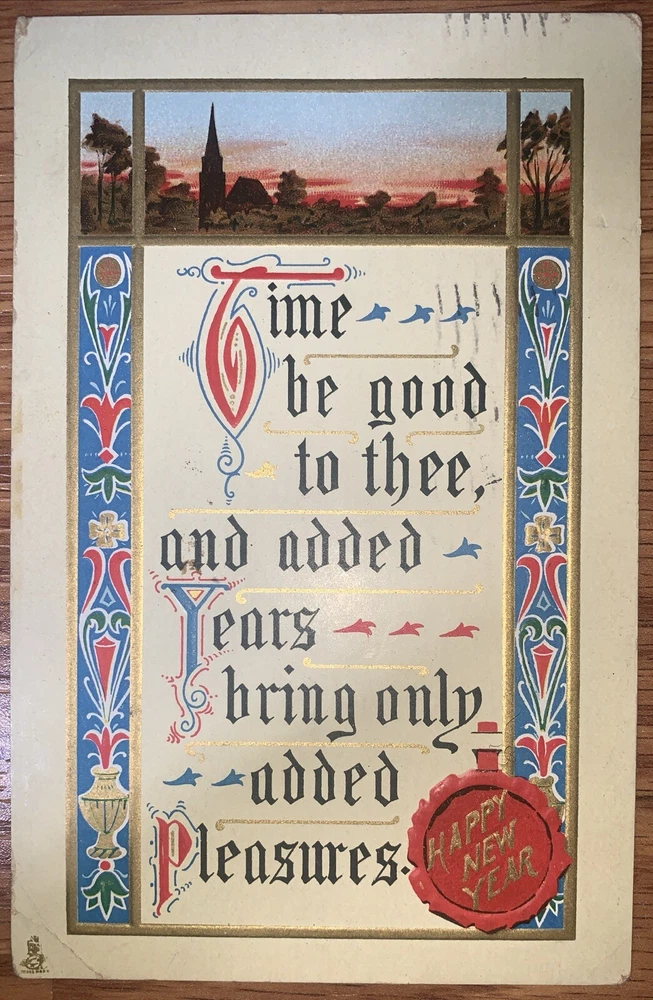 Time
be good
to thee,
and added
Years
bring only
added
Pleasures.
HAPPY
NEW
YEAR